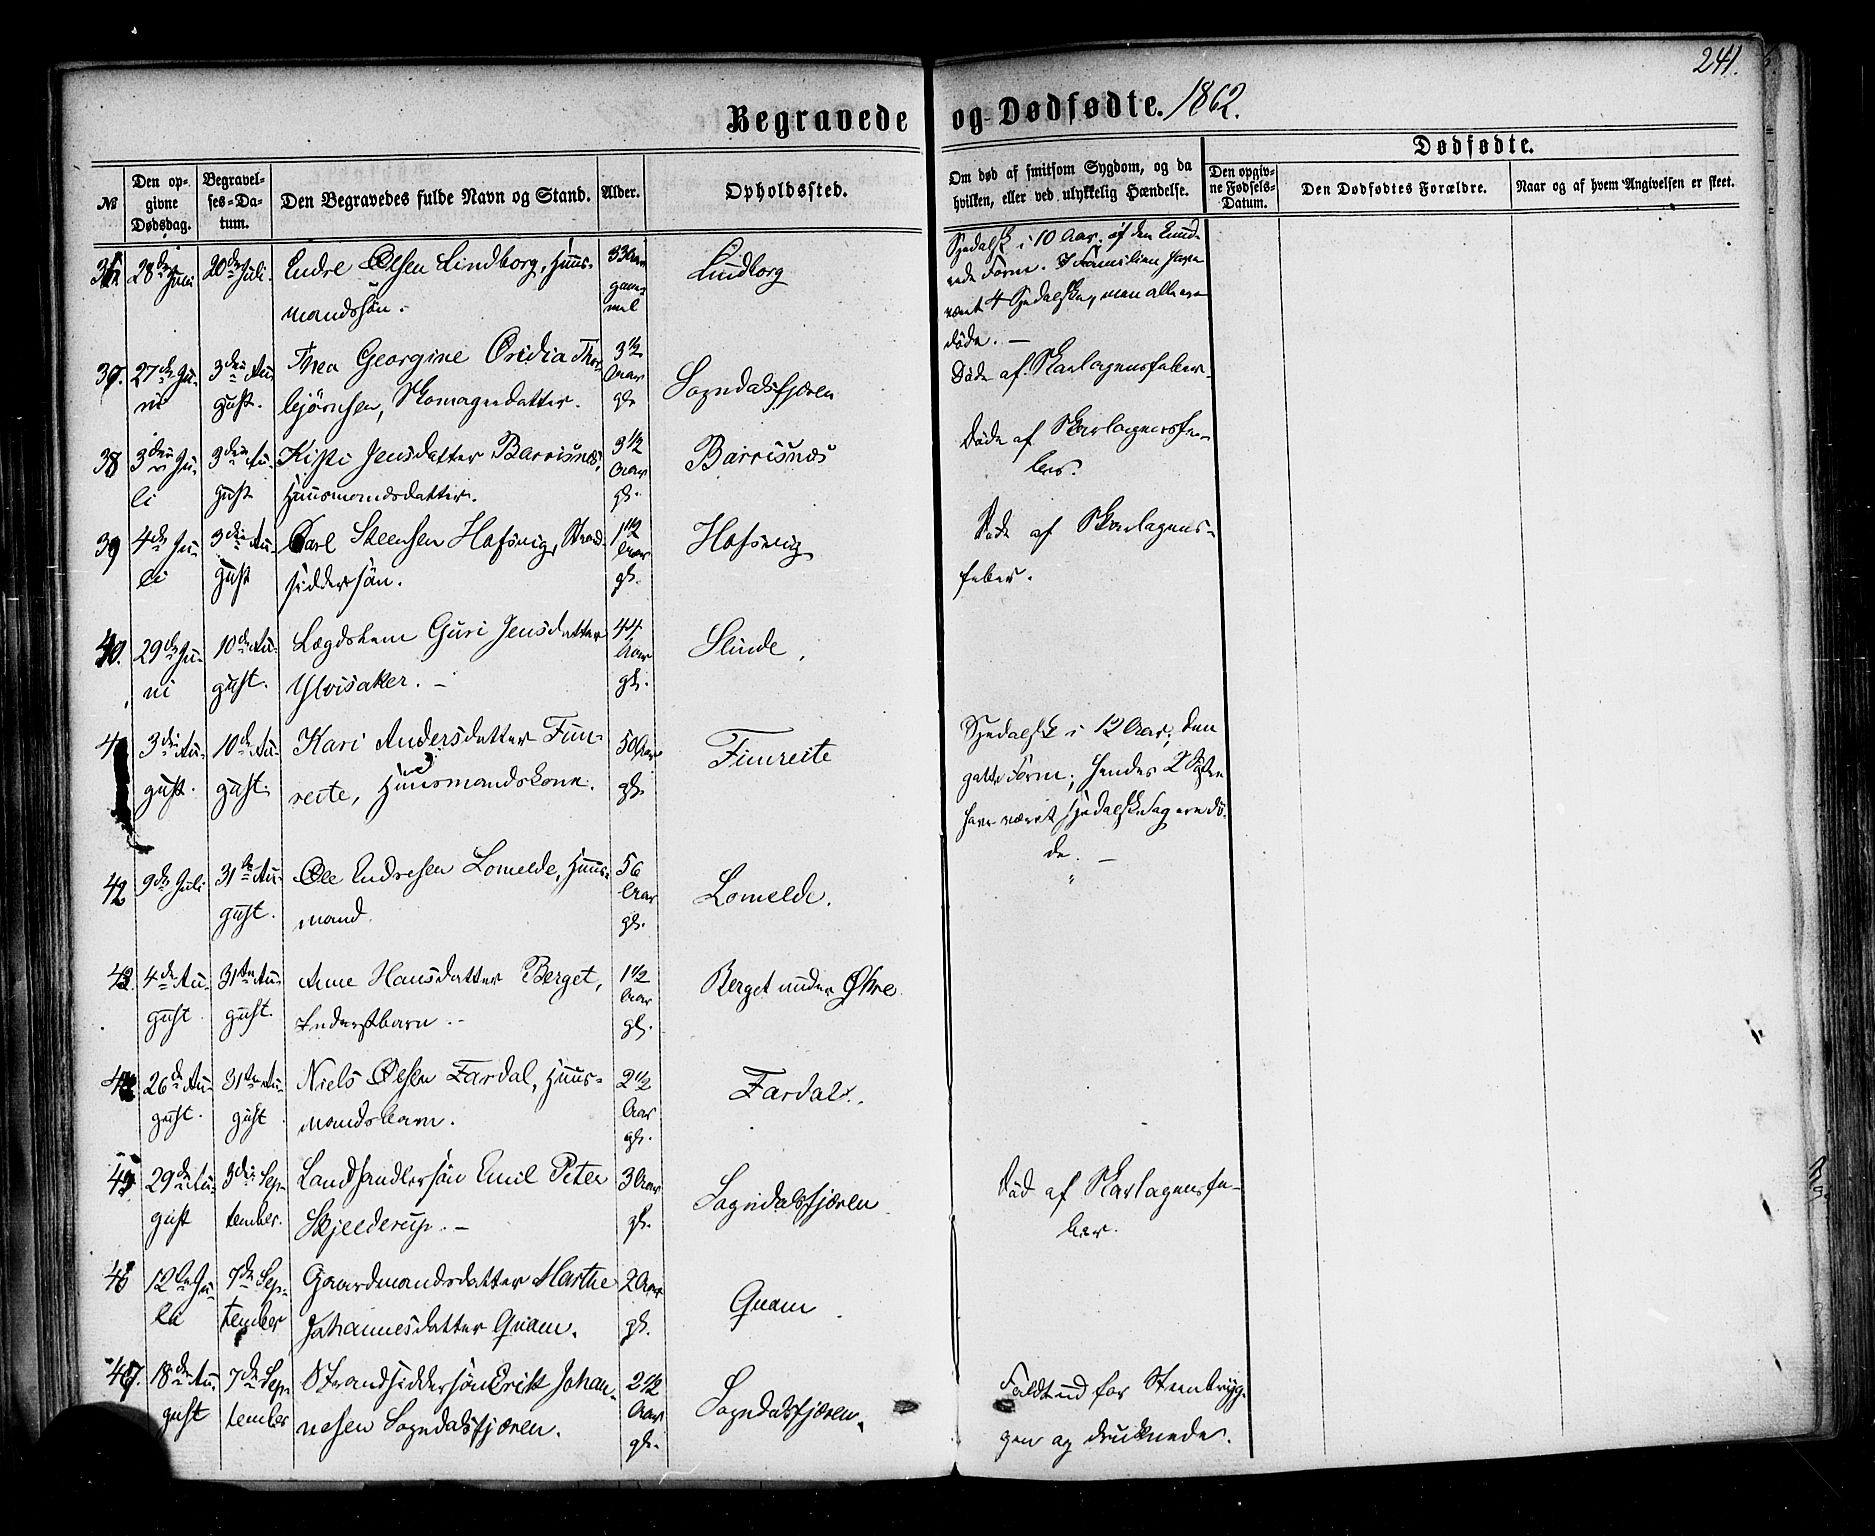 241.
Begravede og Dødfødte. 1862.
№
Den opgivne Dødsdag.
Begravelses-Datum.
Den Begravedes fulde Navn og Stand.
Alder.
Opholdssted.
Om død af smitsom Sygdom, og da hvilken, eller ved ulykkelig Hændelse.
Dødfødte.
Den opgivne Fødsels-Datum.
Den Dødfødtes Forældre.
Naar og af hvem Angivelsen er skeet.
36 28de Juni 20de Juli. Endre Olsen Lindborg, Huus-
mandssøn.
33 Aar
gammel
Lindborg
Spedalsk i 10 Aar. af den
Form. I Familien have
været 4 Spedalske, men alle ere
døde. —
37. 27de Ju-
ni
3die Au-
gust.
Thea Georgine Ovidia Thor-
bjørnsen, Skomagerdatter.
3 1/2
Aar
gl.
Sogndalsfjæren
Døde af Skarlagensfeber.
38 3die Ju-
li
3die Au-
gust
Kisti Jensdatter Barrisnæs,
Huusmandsdatter.
3 1/2
Aar
gl.
Barrisnæs
Døde af Skarlagensfe-
ber.
39 4de Ju-
li
3die Au-
gust
Carl Steensen Hofsvig, Strand-
siddersøn.
1 1/2
Aar
gl.
Hofsvig
Døde af Skarlagens-
feber.
40. 29de Ju-
ni
10de Au-
gust.
Lægdslem Guri Jensdatter
Ylvisaker. —
44
Aar
gl.
Slinde.
41 3die Au-
gust.
10de Au-
gust.
Kari Andersdatter Fim-
reite, Huusmandskone.
50 Aar
gl.
Fimreite
Spedalsk i 12 Aar; den
Form; Hendes 2
have været spedalske og ere dø-
de. —
42 9de Juli 31te Au-
gust.
Ole Endresen Lomelde, Huus-
mand.
56
Aar
gl.
Lomelde.
"
43. 4de Au-
gust
31te Au-
gust.
Anne Hansdatter Berget,
Inderstbarn. -
1 1/2
Aar
gl.
Berget under Øvre
44 26de Au-
gust.
31te Au-
gust
Niels Olsen Fardal, Huus-
mandsbarn.
2 1/2
Aar
gl.
Fardal.
45 29de Au-
gust
3die Sep-
tember.
Landhandlersøn Emil Peter
Skjelderup. —
3 Aar
gl.
Sogndalsfjæren
Død af Skarlagensfe-
ber.
46 12te Ju-
li
7de Sep-
tember
Gaardmandsdatter Marthe
Johannesdatter Quam.
2 Aar
gl.
Quam.
47. 18de Au-
gust
7de Sep-
tember
Strandsiddersøn Erik Johan-
nesen Sogndalsfjæren.
2 1/2
Aar
gl.
Sogndalsfjæren.
Faldt ud for Steenbryg-
gen og druknede.